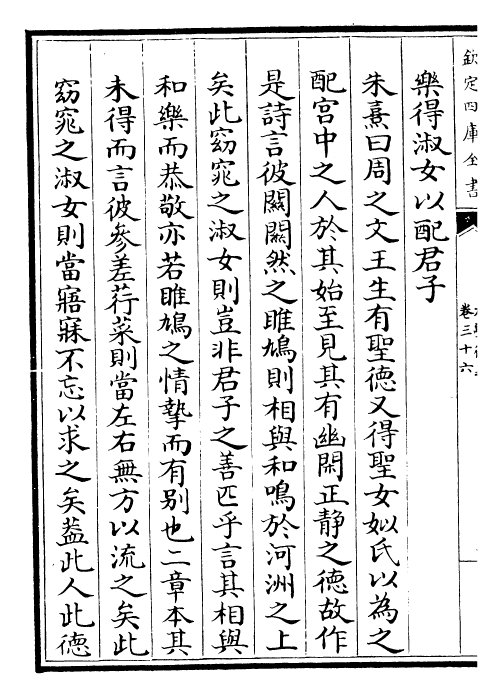 欽定四庫全書
卷三十六
樂得淑女以配君子
朱熹曰周之文王生有聖德又得聖女姒氏以為之
配宫中之人於其始至見其有幽閑正静之德故作
是詩言彼關關然之雎鳩則相與和鳴於河洲之上
矣此窈窕之淑女則豈非君子之善匹乎言其相與
和樂而恭敬亦若雎鳩之情摯而有别也二章本其
未得而言彼參差荇菜則當左右無方以流之矣此
窈窕之淑女則當寤寐不忘以求之矣葢此人此德